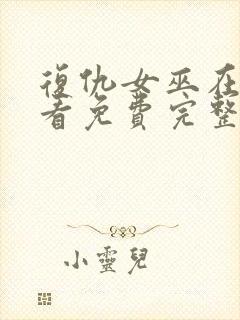 復仇女巫在
看免費完整
小靈兒